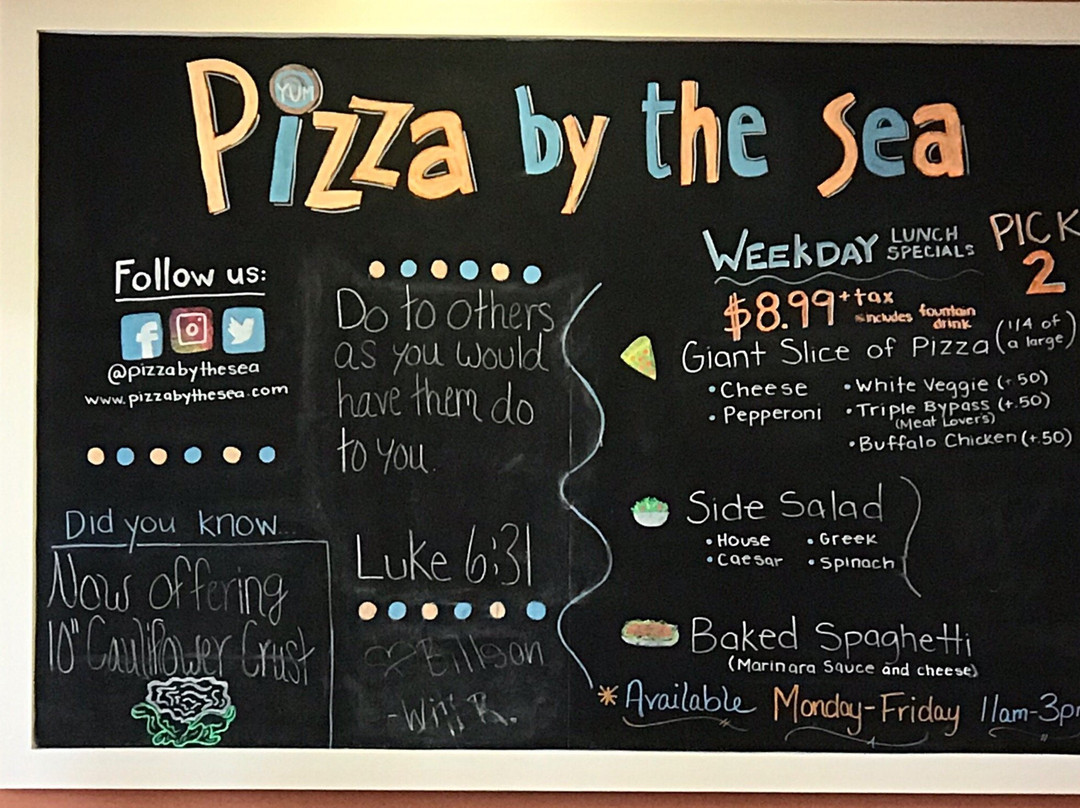 YUM
Pizza by the Sea
Follow us:
@pizzabythesea
www.pizzabythesea.com
Did you know...
Now offering
10" Cauliflower Crust
Do to others
as you would
have them do
to you.
Luke 6:31
WEEKDAY LUNCH SPECIALS
PICK
2
$8.99 + tax
includes fountain drink
Giant Slice of Pizza (1/4 of a large)
• Cheese
• Pepperoni
• White Veggie (+.50)
• Triple Bypass (+.50)
(Meat Lovers)
• Buffalo Chicken (+.50)
Side Salad
• House
• Caesar
• Greek
• Spinach
Baked Spaghetti
(Marinara Sauce and cheese)
* Available Monday-Friday 11am-3p